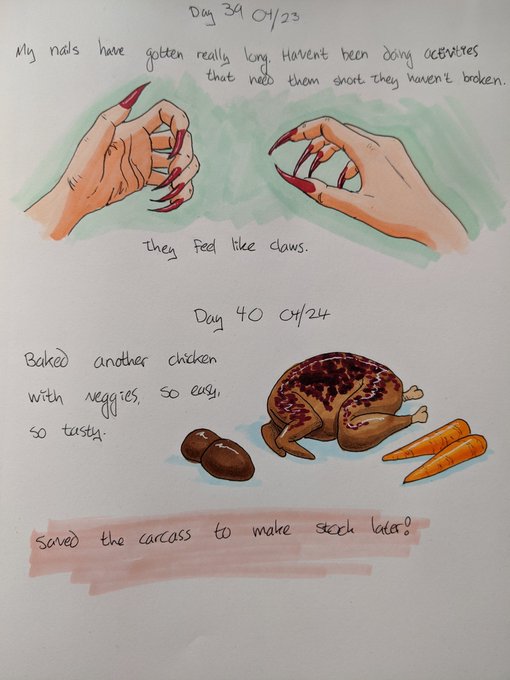 Day 39 04/23
My nails have gotten really long. Haven't been doing activities
that need them short. They haven't broken.
They feel like claws.
Day 40 04/24
Baked another chicken
with veggies, so easy,
so tasty.
Saved the carcass to make stock later!